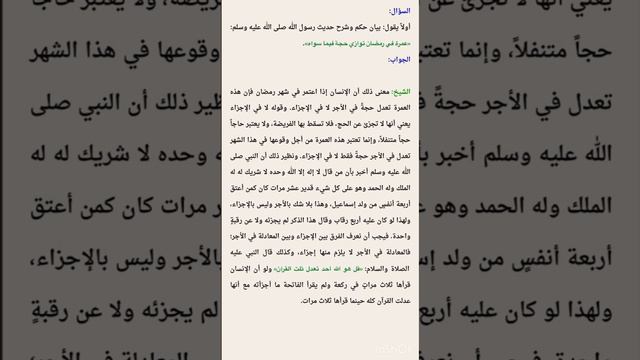 السؤال:
أولاً يقول: بيان حكم وشرح حديث رسول الله صلى الله عليه وسلم:
«عمرة في رمضان توازي حجة فيما سواه».
الجواب:
الشيخ: معنى ذلك أن الإنسان إذا اعتمر في شهر رمضان فإن هذه
العمرة تعدل حجةً في الأجر لا في الإجزاء. وقوله لا في الإجزاء
يعني أنها لا تجزئ عن الحج، فلا تسقط بها الفريضة، ولا يعتبر حاجاً
حجاً متنفلاً، وإنما تعتبر هذه العمرة من أجل وقوعها في هذا الشهر
تعدل في الأجر حجة فقط لا في الإجزاء. ونظير ذلك أن النبي صلى
الله عليه وسلم أخبر بأن من قال لا إله إلا الله وحده لا شريك له له
الملك وله الحمد وهو على كل شيء قدير عشر مرات كان كمن أعتق
أربعة أنفسٍ من ولد إسماعيل، وهذا بلا شك بالأجر وليس بالإجزاء،
ولهذا لو كان عليه أربع رقاب وقال هذا الذكر لم يجزئه ولا عن رقبةٍ
واحدة. فيجب أن نعرف الفرق بين الإجزاء وبين المعادلة في الأجر؛
فالمعادلة في الأجر لا يلزم منها إجزاء، وكذلك قال النبي عليه
الصلاة والسلام: «قل هو الله أحد تعدل ثلث القرآن» ولو أن الإنسان
قرأها ثلاث مراتٍ في ركعة ولم يقرأ الفاتحة ما أجزأته مع أنها
عدلت القرآن كله حينما قرأها ثلاث مرات.